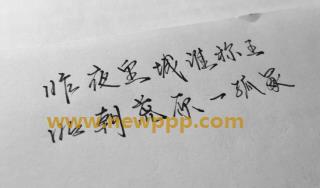 昨夜里城谁称王
朝荒原一孤冢
www.newppp.com